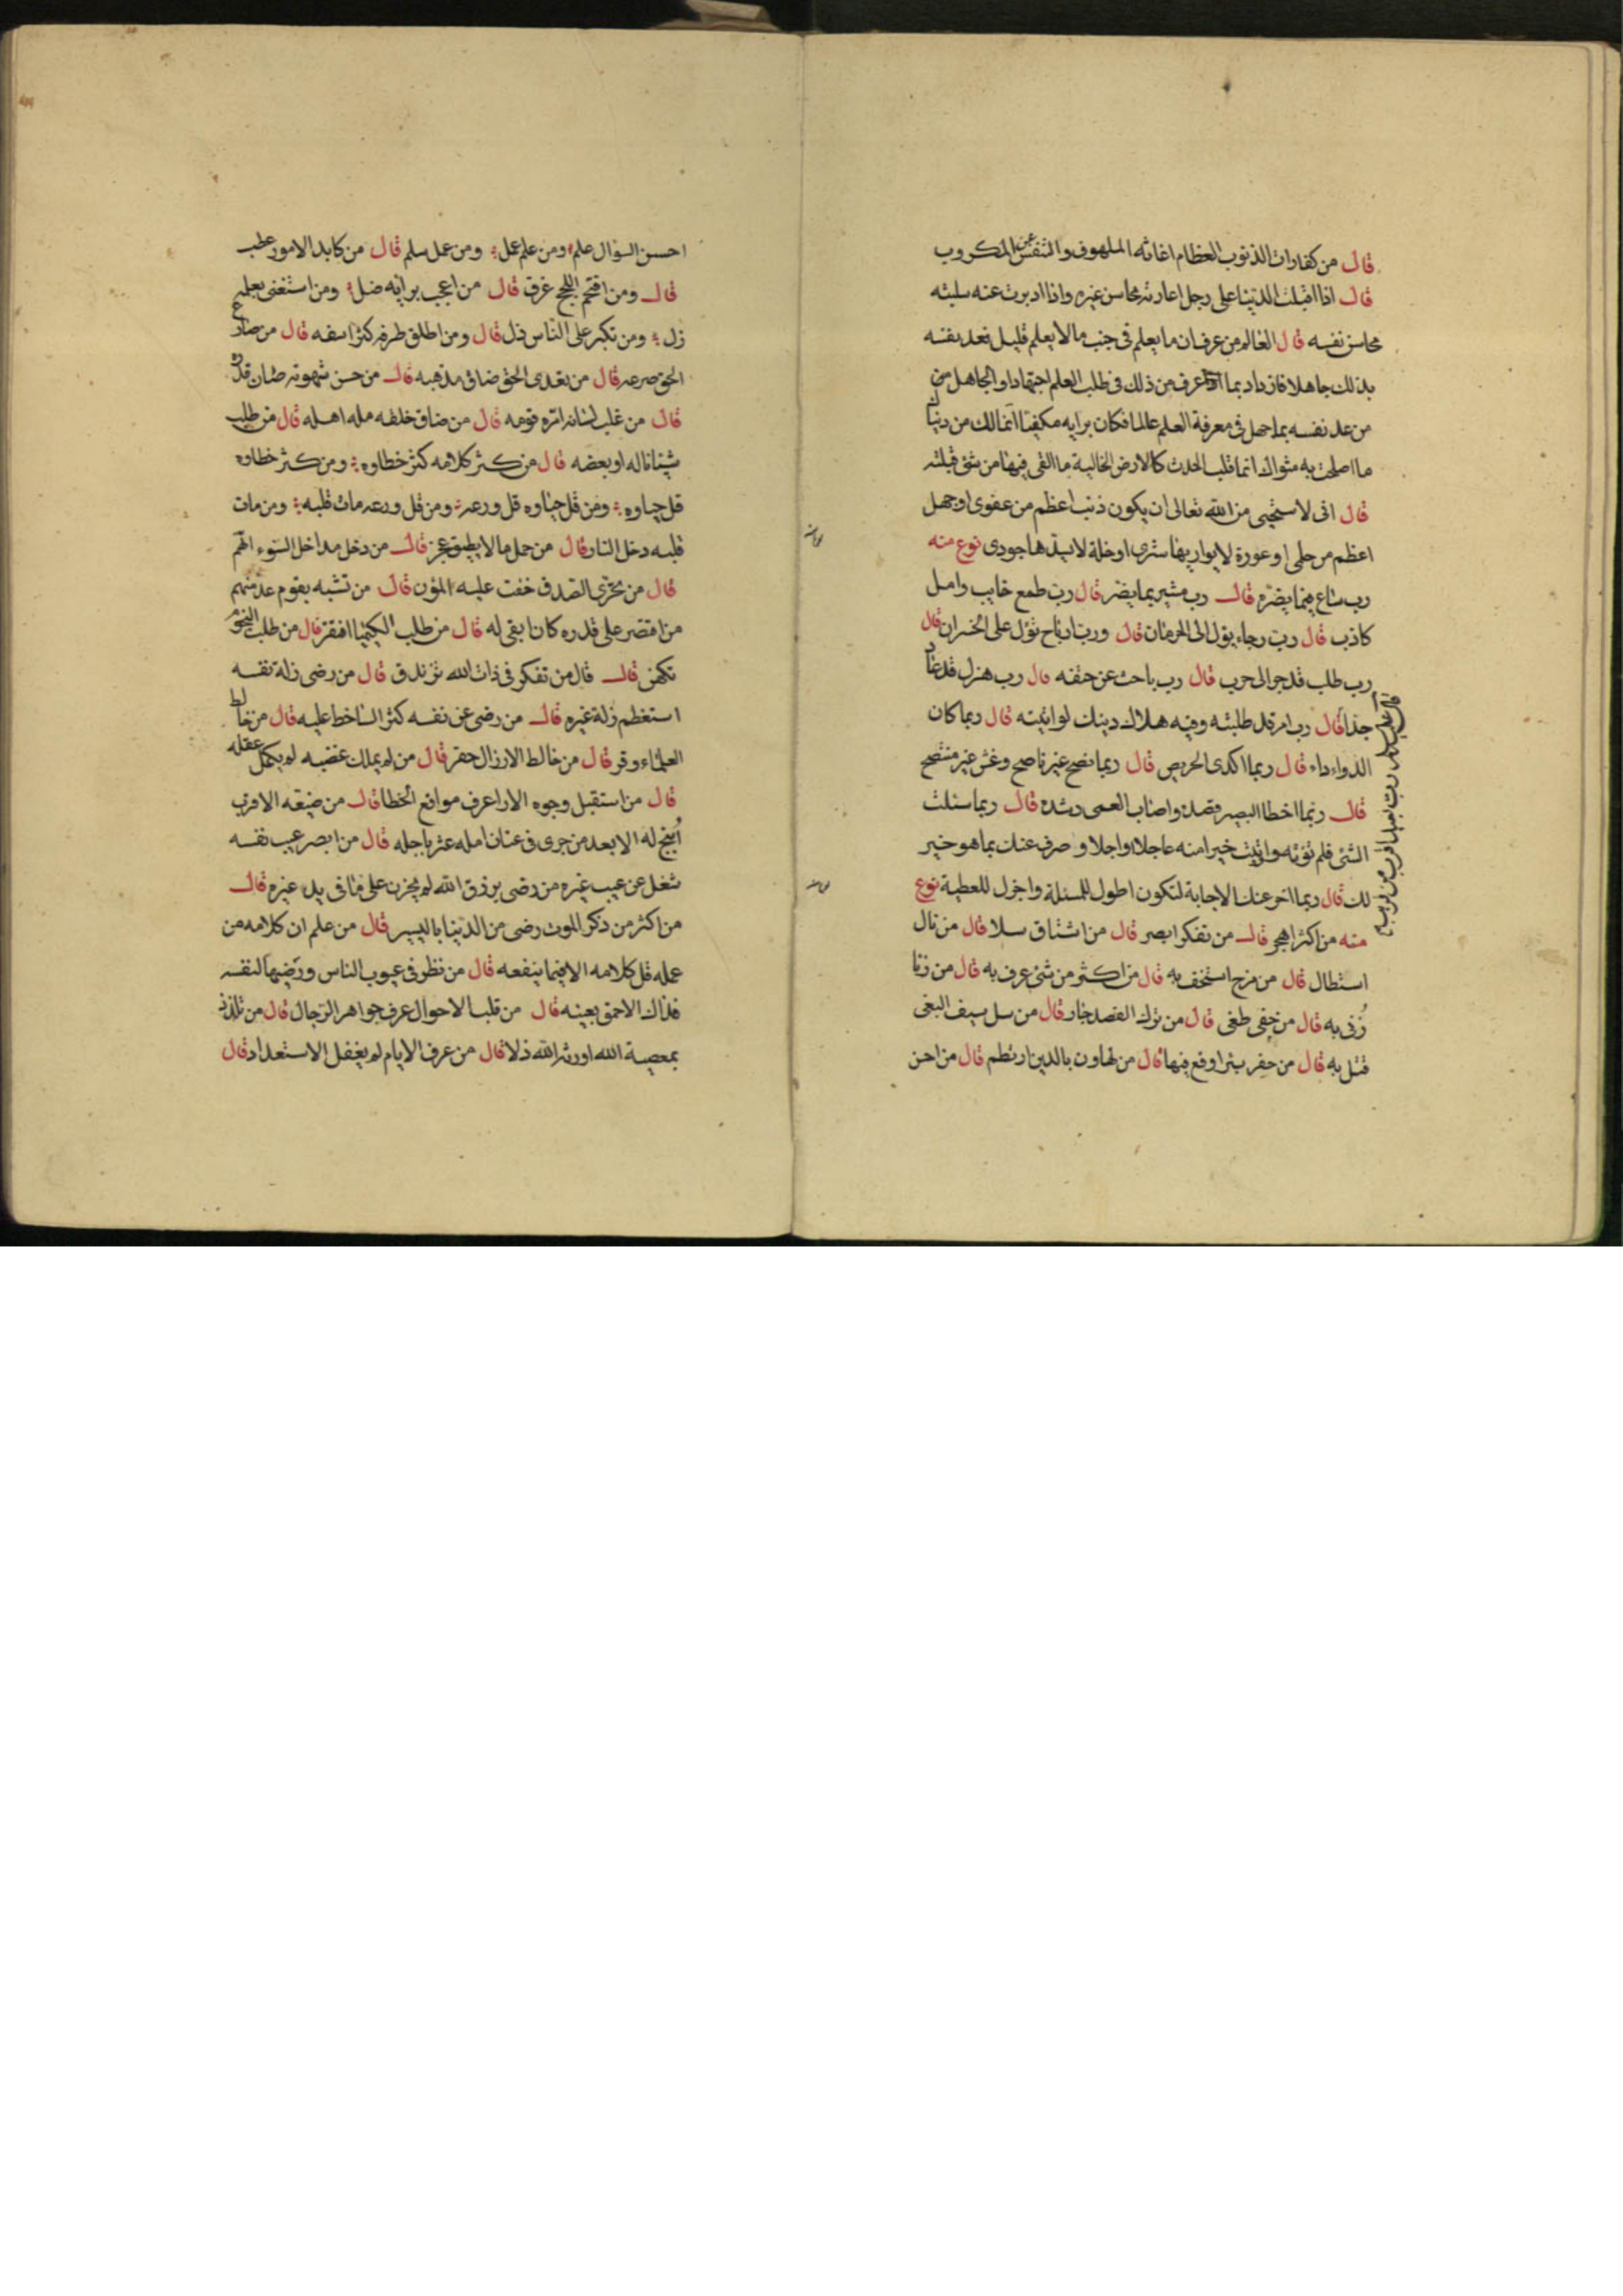 قال من كفارات الذنوب العظام اغاثه الملهوف والتنفيس عن المكروب
قال اذا اقبلت الدنيا على رجل اعارته محاسن غيره واذا ادبرت عنه سلبته
محاسن نفسه قال العالم من عرف ان ما يعلم فى جنب ما لا يعلم قليل فعد نفسه
بذلك جاهلا فازداد بما عرف من ذلك فى طلب العلم اجتهادا والجاهل من
من عد نفسه بما جهل فى معرفة العلم عالما فكان برايه مكتفيا انما لك من دنياك
ما اصلحت به مثواك انما قلب الحدث كالارض الخالية ما القى فيها من شئ قبلته
قال انى لاستحيى من الله تعالى ان يكون ذنب اعظم من عفوى او جهل
اعظم من حلمى او عورة لا يواريها سترى او خلة لا يسدها جودى نوع منه
رب ساع فيما يضره قال رب مشير بما يضر قال رب طمع خايب وامل
كاذب قال رب رجاء يؤل الى الحرمان قال ورب ارباح تؤل على الخسران قال
رب طلب قد جر الى حرب قال رب باحث عن حتفه قال رب هزل قد عاد
جدا قال رب امر قد طلبته وفيه هلاك دينك لو اتيته قال ربما كان
الدواء داء قال ربما اكدى الحريص قال ربما نصح غير ناصح وغش غير منتصح
قال ربما اخطا البصير قصده واصاب العمى رشده قال ربما سئلت
الشئ فلم تؤته واوتيت خيرا منه عاجلا واجلا و صرف عنك بما هو خير
لك قال ربما اخر عنك الاجابة لتكون اطول للمسئلة واجزل للعطية نوع
منه من اكثر اهجر قال من تفكر ابصر قال من اشتاق سلا قال من نال
استطال قال من مزح استخف به قال من اكثر من شئ عرف به قال من زنا
زنى به قال من خفى طغى قال من ترك القصد جار قال من سل سيف البغى
قتل به قال من حفر بئرا وقع فيها قال من تهاون بالدين ارتطم قال من احسن
قال رب بعيد اقرب من قريب
احسن السوال علم ومن علم عمل ومن عمل سلم قال من كابد الامور عطب
قال ومن اقتحم اللجج غرق قال من اعجب برايه ضل ومن استغنى بعلمه
زل ومن تكبر على الناس ذل قال ومن اطلق طرفه كثر اسفه قال من صارع
الحق صرعه قال من تعدى الحق ضاق مذهبه قال من حسن شهوته صان قدره
قال من غلب لسانه امره قومه قال من ضاق خلقه مله اهله قال من طلب
شيئا ناله او بعضه قال من كثر كلامه كثر خطاوه ومن كثر خطاوه
قل حياوه ومن قل حياوه قل ورعه ومن قل ورعه مات قلبه ومن مات
قلبه دخل النار قال من حمل ما لا يطيق عجز قال من دخل مداخل السوء اتهم
قال من تحرى القصد خفت عليه المؤن قال من تشبه بقوم عد منهم
من اقتصر على قدره كان ابقى له قال من طلب الكيميا افتقر قال من طلب النجوم
تكهن قال قال من تفكر فى ذات الله تزندق قال من رضى زلة نفسه
استعظم زلة غيره قال من رضى عن نفسه كثر الساخط عليه قال من خالط
العلماء وقر قال من خالط الارزال حقر قال من لم يملك غضبه لم يكمل عقله
قال من استقبل وجوه الارا عرف مواقع الخطا قال من ضيعه الاقرب
اتيح له الابعد من جرى فى عنان امله عثر باجله قال من ابصر عيب نفسه
شغل عن عيب غيره من رضى برزق الله لم يحزن على ما فى يد غيره قال
من اكثر من ذكر الموت رضى من الدنيا باليسير قال من علم ان كلامه من
عمله قل كلامه الا فيما ينفعه قال من نظر فى عيوب الناس ورضيها لنفسه
فذاك الاحمق بعينه قال من قلب الاحوال عرف جواهر الرجال قال من تلذذ
بمعصية الله اورثه الله ذلا قال من عرف الايام لم يغفل الاستعداد قال